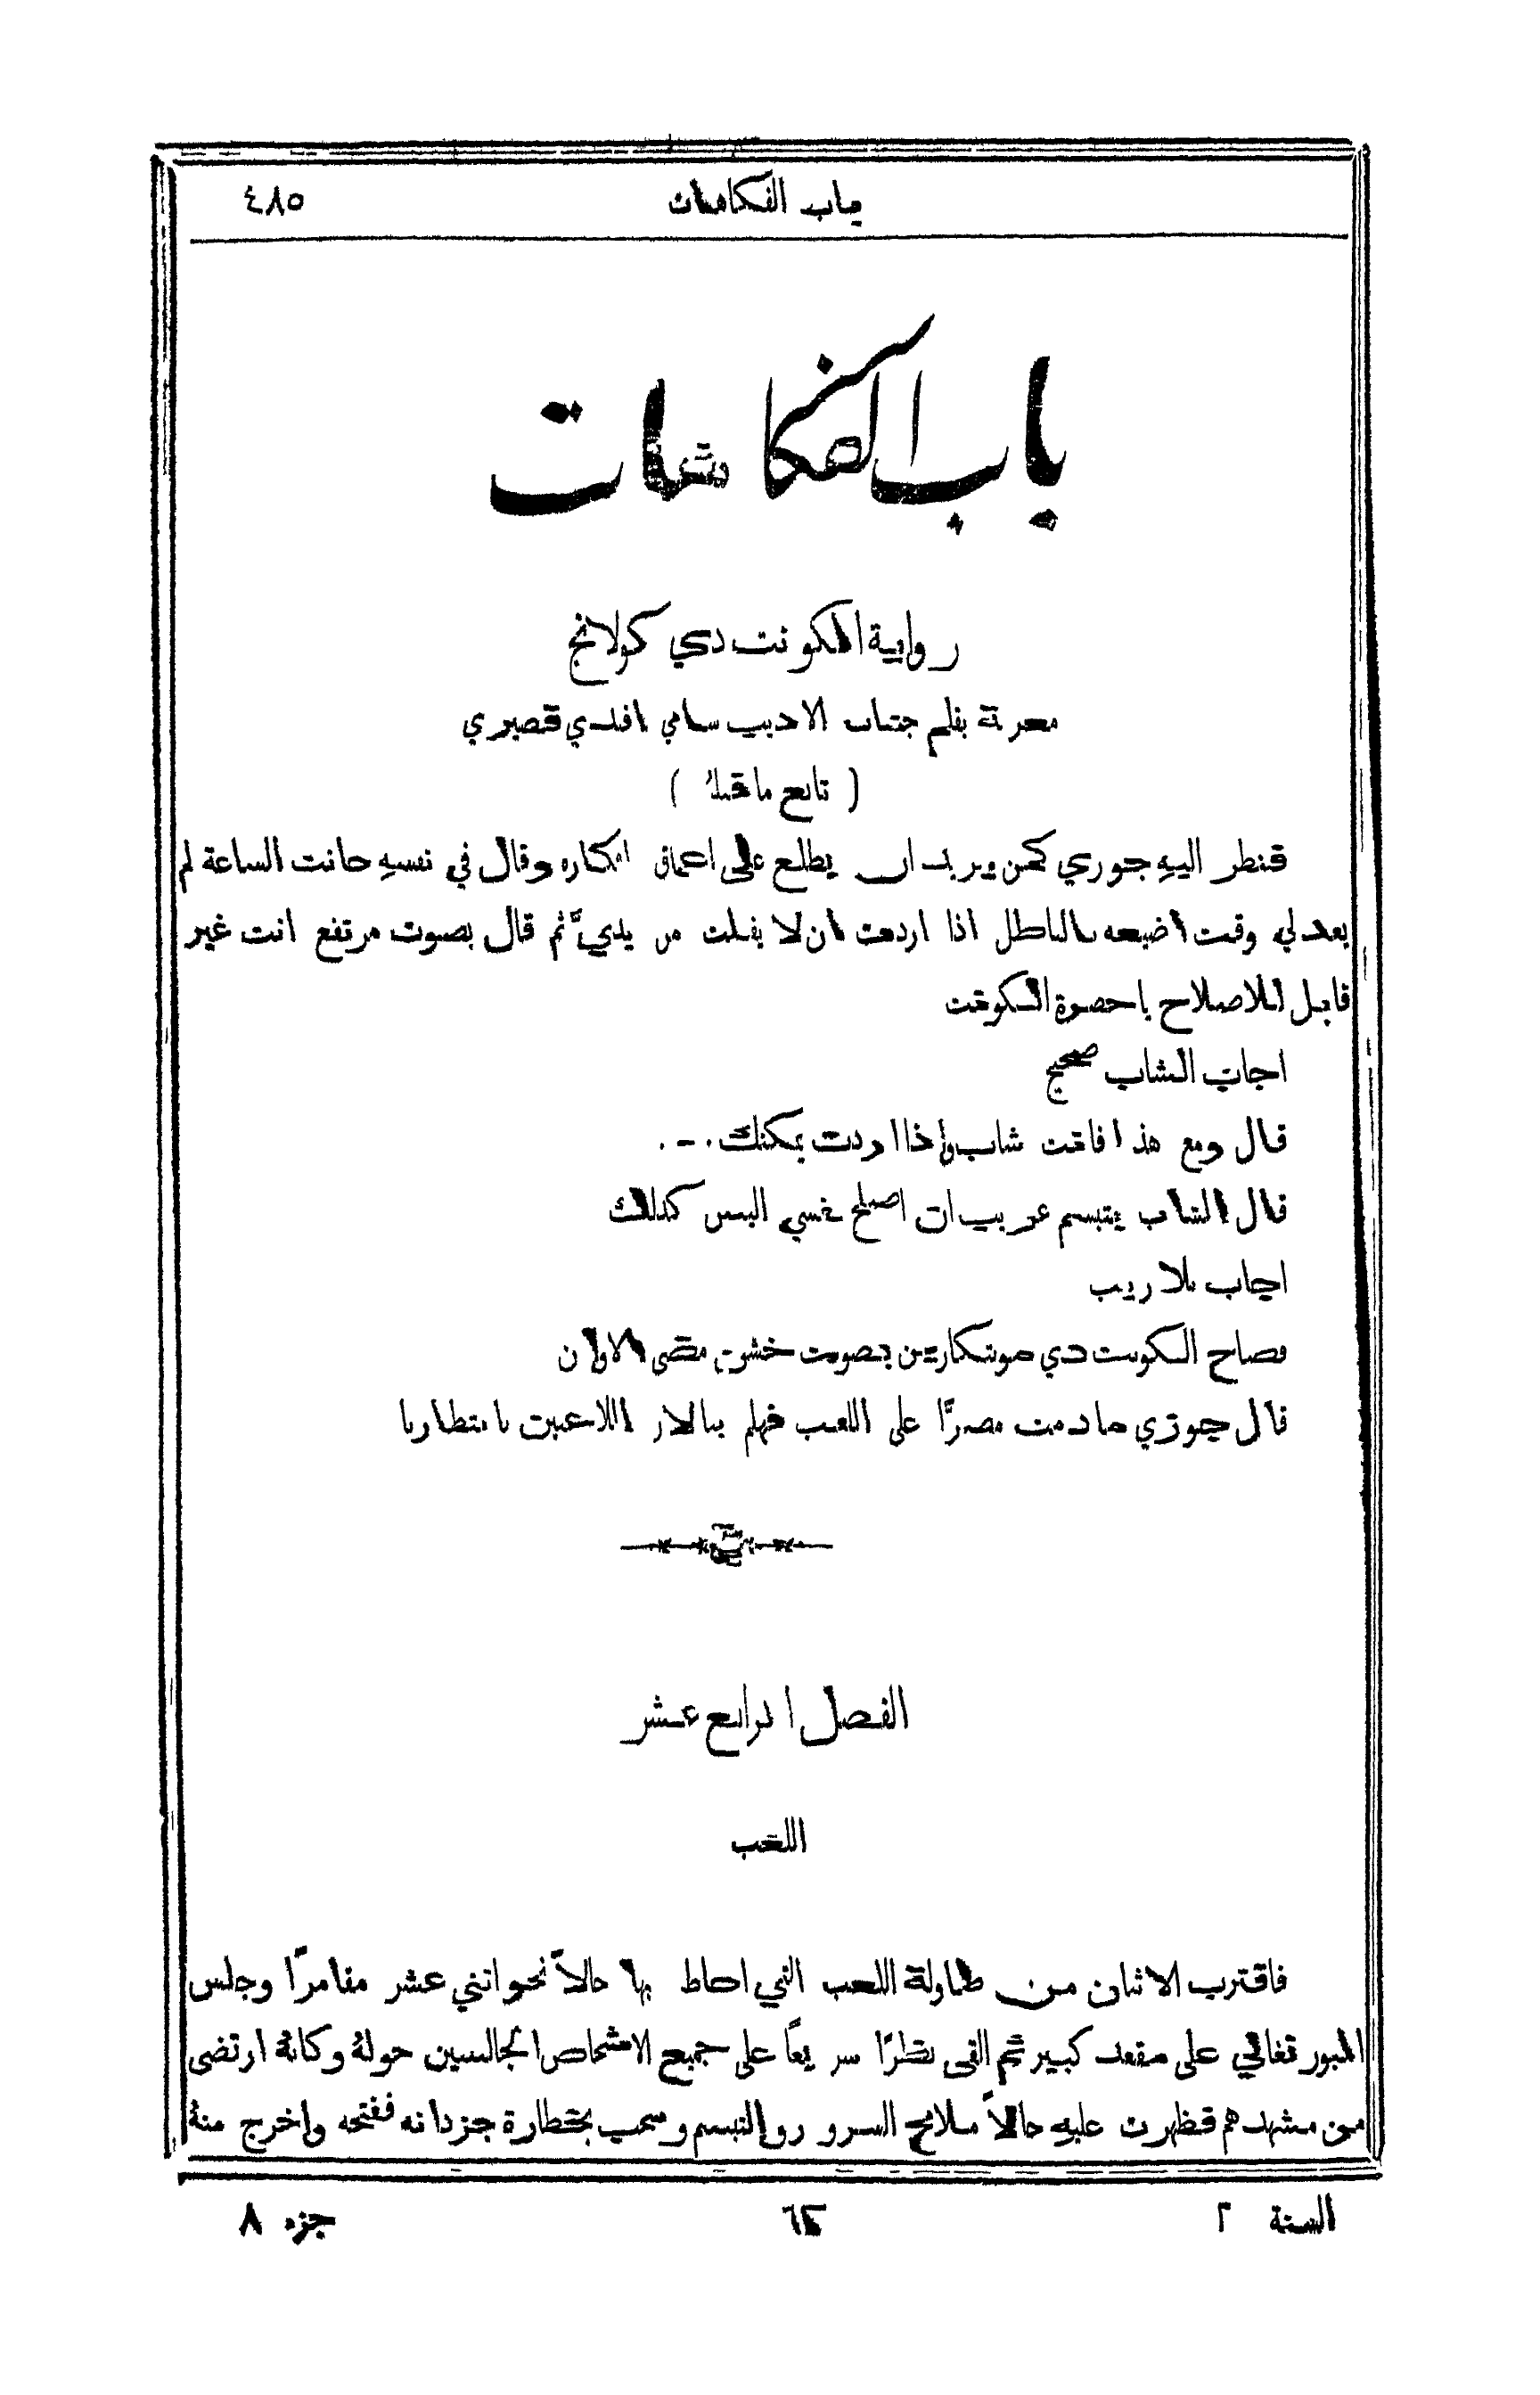 باب الفكاهات ٤٨٥
باب الفكاهات
رواية الكونت دي كولانج
معربة بقلم جناب الاديب سامي افندي قصيري
( تابع ما قبله )
فنظر اليهِ جوري كمن يريد ان يطلع على اعماق افكاره وقال في نفسهِ حانت الساعة لم
يعد لي وقت اضيعه بالباطل اذا اردت ان لا يفلت من يديَّ ثم قال بصوت مرتفع انت غير
قابل للاصلاح يا حضرة الكونت
اجاب الشاب صحيح
قال ومع هذا فانت شاب واذا اردت يمكنك . - .
قال الشاب يتبسم ان اصلح نفسي اليس كذلك
اجاب بلا ريب
فصاح الكونت دي مونتكارين بصوت خشن مضى الاوان
قال جوري ما دمت مصرًّا على اللعب فهلم بنا لان اللاعبين بانتظارنا
الفصل الرابع عشر
اللعب
فاقترب الاثنان من طاولة اللعب التي احاط بها حالاً نحو اثني عشر مقامرًا وجلس
على مقعد كبير ثم القى نظرًا سريعًا على جميع الاشخاص الجالسين حولهُ وكانهُ ارتضى
من مشهدهم فظهرت عليهِ حالاً ملامح السرور والتبسم وسحب بخطارة جزدانه ففتحه واخرج منهُ
السنة ٢ ٦٢ جزء ٨